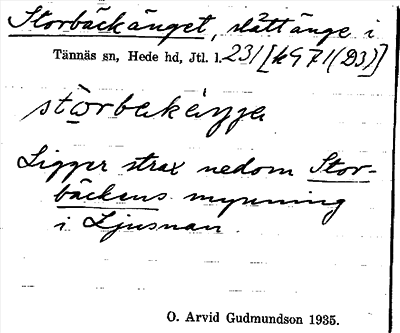 Storbäckänget, slåttänge i
Tännäs sn, Hede hd, Jtl. l. 231 [k971(D3)]
stòrbekèŋŋe
Ligger strax nedom Stor-
bäckens mynning
i Ljusnan.
O. Arvid Gudmundson 1935.